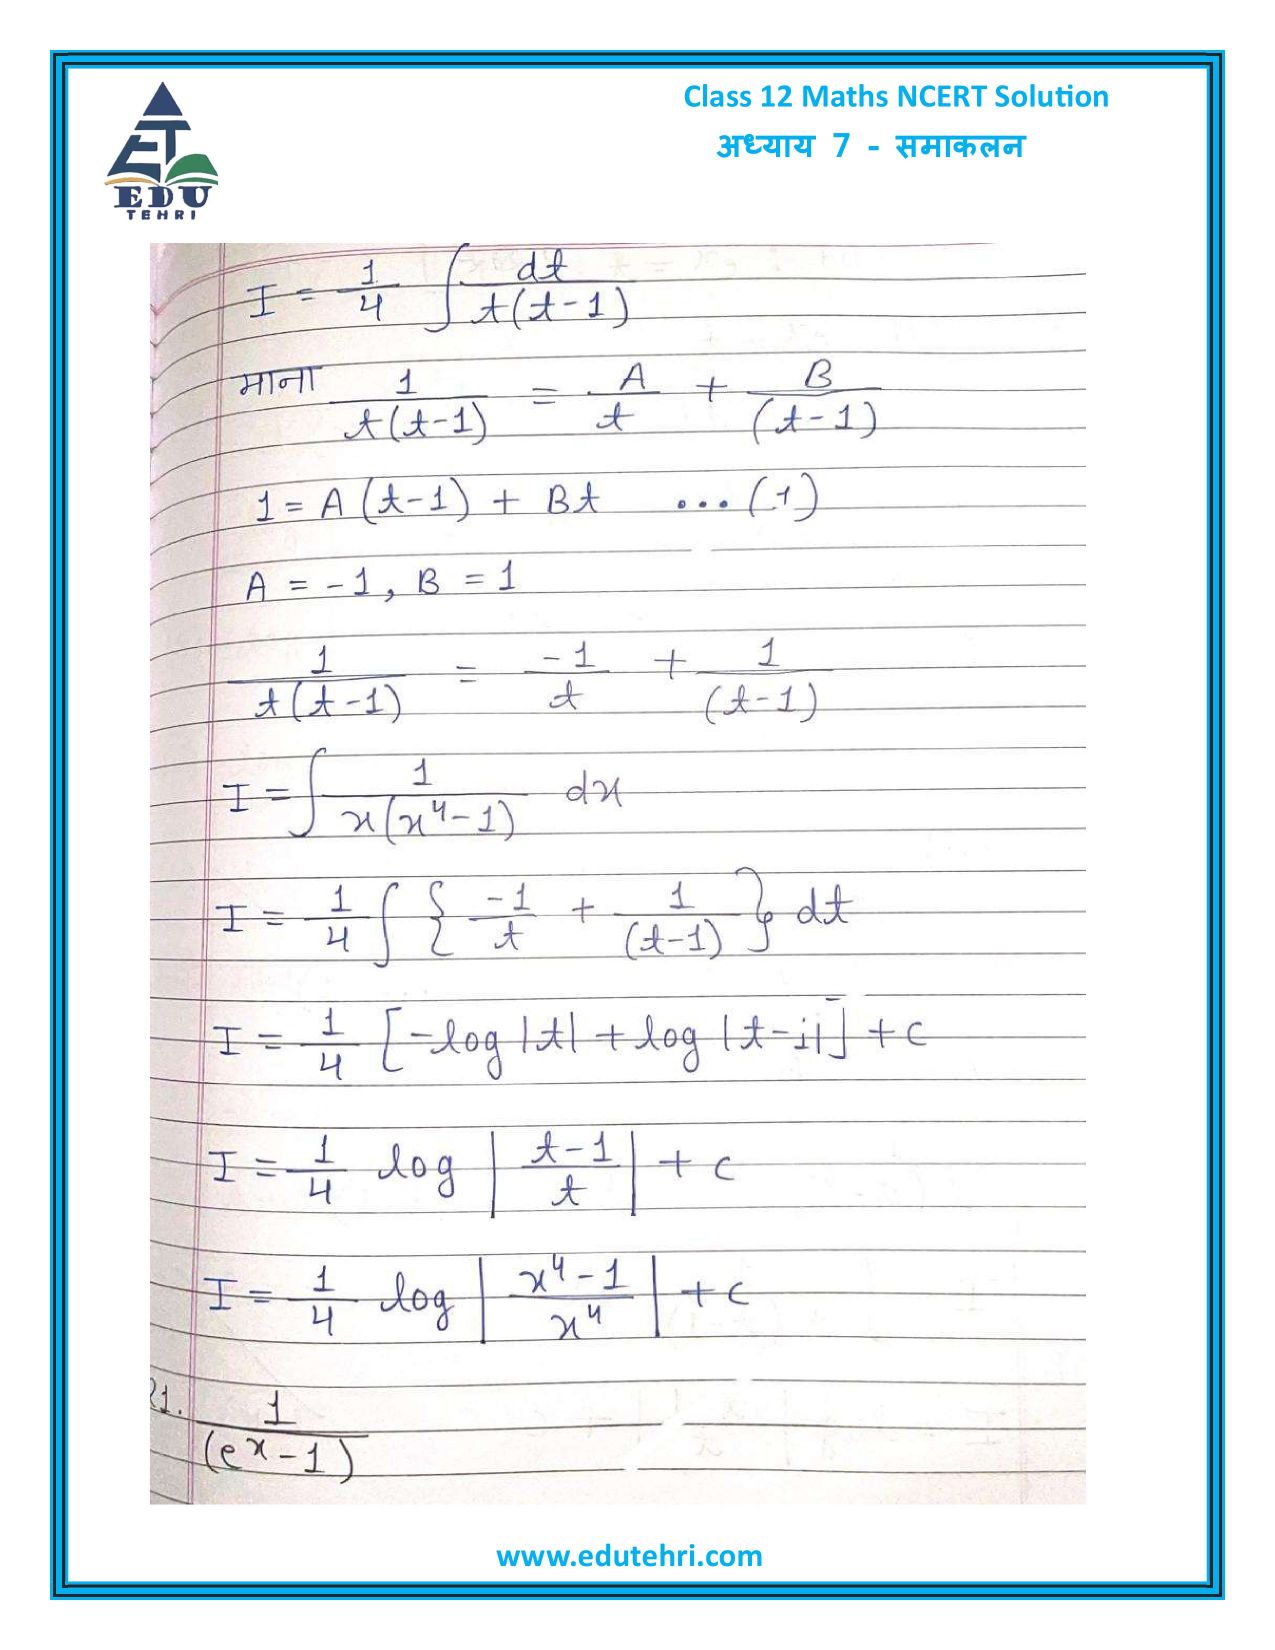 Class 12 Maths NCERT Solution
अध्याय 7 - समाकलन
EDU
TEHRI
I = 1/4 ∫ dt / t(t-1)
माना 1 / t(t-1) = A / t + B / (t-1)
1 = A(t-1) + Bt ...(1)
A = -1, B = 1
1 / t(t-1) = -1 / t + 1 / (t-1)
I = ∫ 1 / x(x⁴-1) dx
I = 1/4 ∫ { -1 / t + 1 / (t-1) } dt
I = 1/4 [-log|t| + log|t-1|] + c
I = 1/4 log | t-1 / t | + c
I = 1/4 log | x⁴-1 / x⁴ | + c
21. 1 / (eˣ-1)
www.edutehri.com